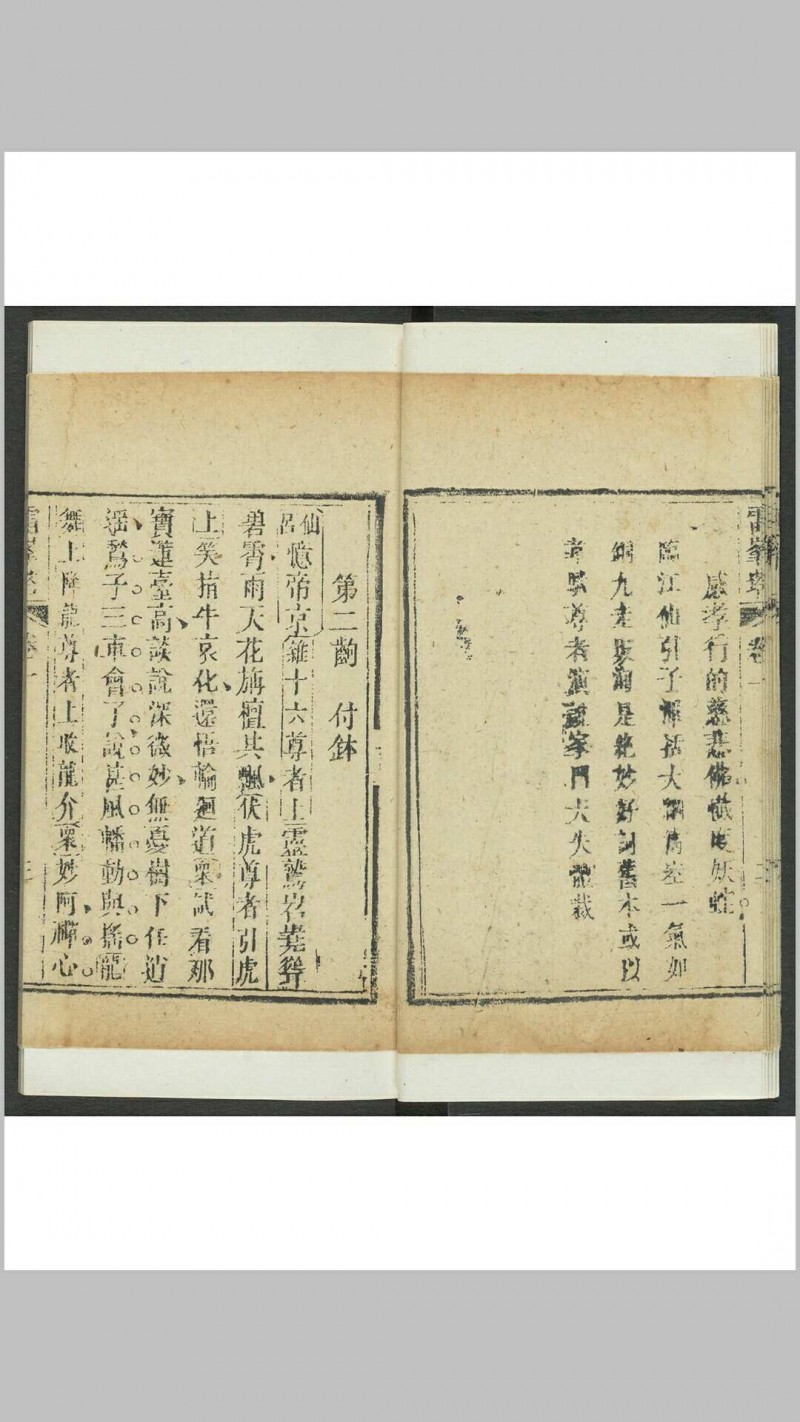 雷峯塔 卷一
感孝行的慈悲佛懺度妖蛙
臨江仙引子 括大 一氣如
銅丸走坂洵是絶妙好詞舊本或以
韋馱尊者演說家門大失體裁
第二齣 付鉢
仙呂憶帝京雜十六尊者上靈鷲岩嶤聳
碧霄雨天花旃檀共飄伏虎尊者引虎
上笑指牛哀化還悟輪迴道裏試看那
寶蓮臺高談說深微妙無憂樹下任逍
遥鷲子三車會了說甚風幡動與搖龍
舞上降龍尊者上收龍介裏妙阿禪心
雷峯塔 卷一